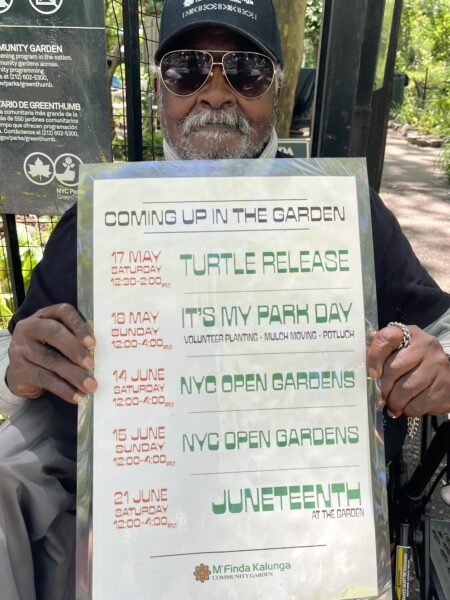 MMUNITY GARDEN
ening program in the nation.
munity gardens across
mmunity programming
s at (212) 602-5300,
ov/parks/greenthumb.
ITARIO DE GREENTHUMB
comunitaria más grande de la
s de 550 jardines comunitarios
po que ofrecen programación
a. Contáctenos al (212) 602-5300
gov/parks/greenthumb.
NYC Parks
COMING UP IN THE GARDEN
17 MAY
SATURDAY
12:30-2:00PM
TURTLE RELEASE
18 MAY
SUNDAY
12:00-4:00PM
IT'S MY PARK DAY
VOLUNTEER PLANTING - MULCH MOVING - POTLUCK
14 JUNE
SATURDAY
12:00-4:00PM
NYC OPEN GARDENS
15 JUNE
SUNDAY
12:00-4:00PM
NYC OPEN GARDENS
21 JUNE
SATURDAY
12:00-4:00PM
JUNETEENTH
AT THE GARDEN
M'Finda Kalunga
COMMUNITY GARDEN